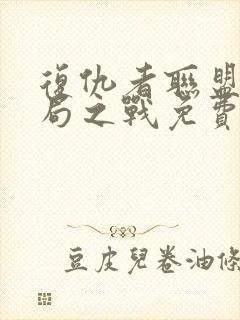 復仇者聯盟
局之戰免費
豆皮兒卷油條